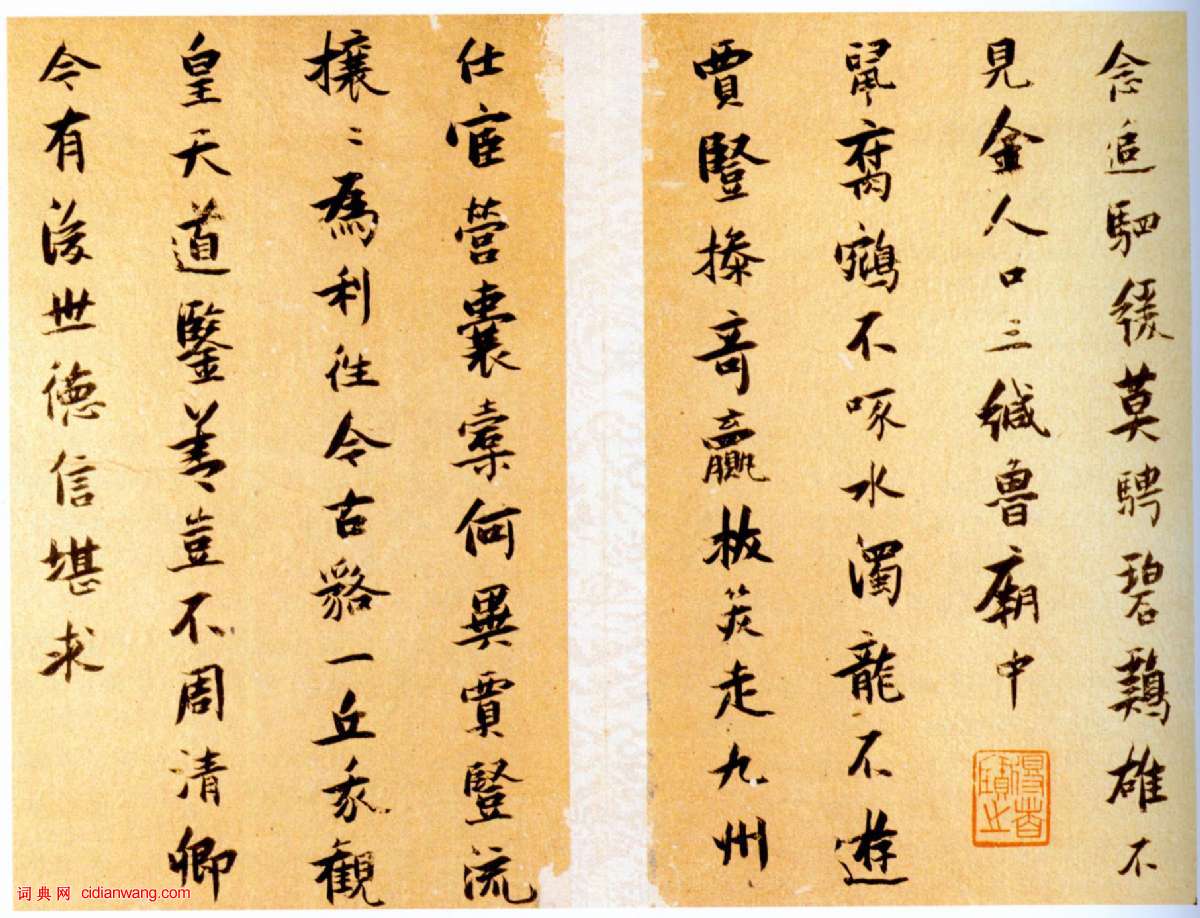 念追駟緩莫騁碧鷄雄不
見金人口三緘魯廟中
鼠腐鵷不啄水濁龍不遊
賈豎操奇贏走九州
仕宦營囊橐何異賈豎流
攘〻爲利往今古貉一丘我觀
皇天道鑒善豈不周清卿
今有後世德信堪求
得者寶之
词典网 cidianwang.com